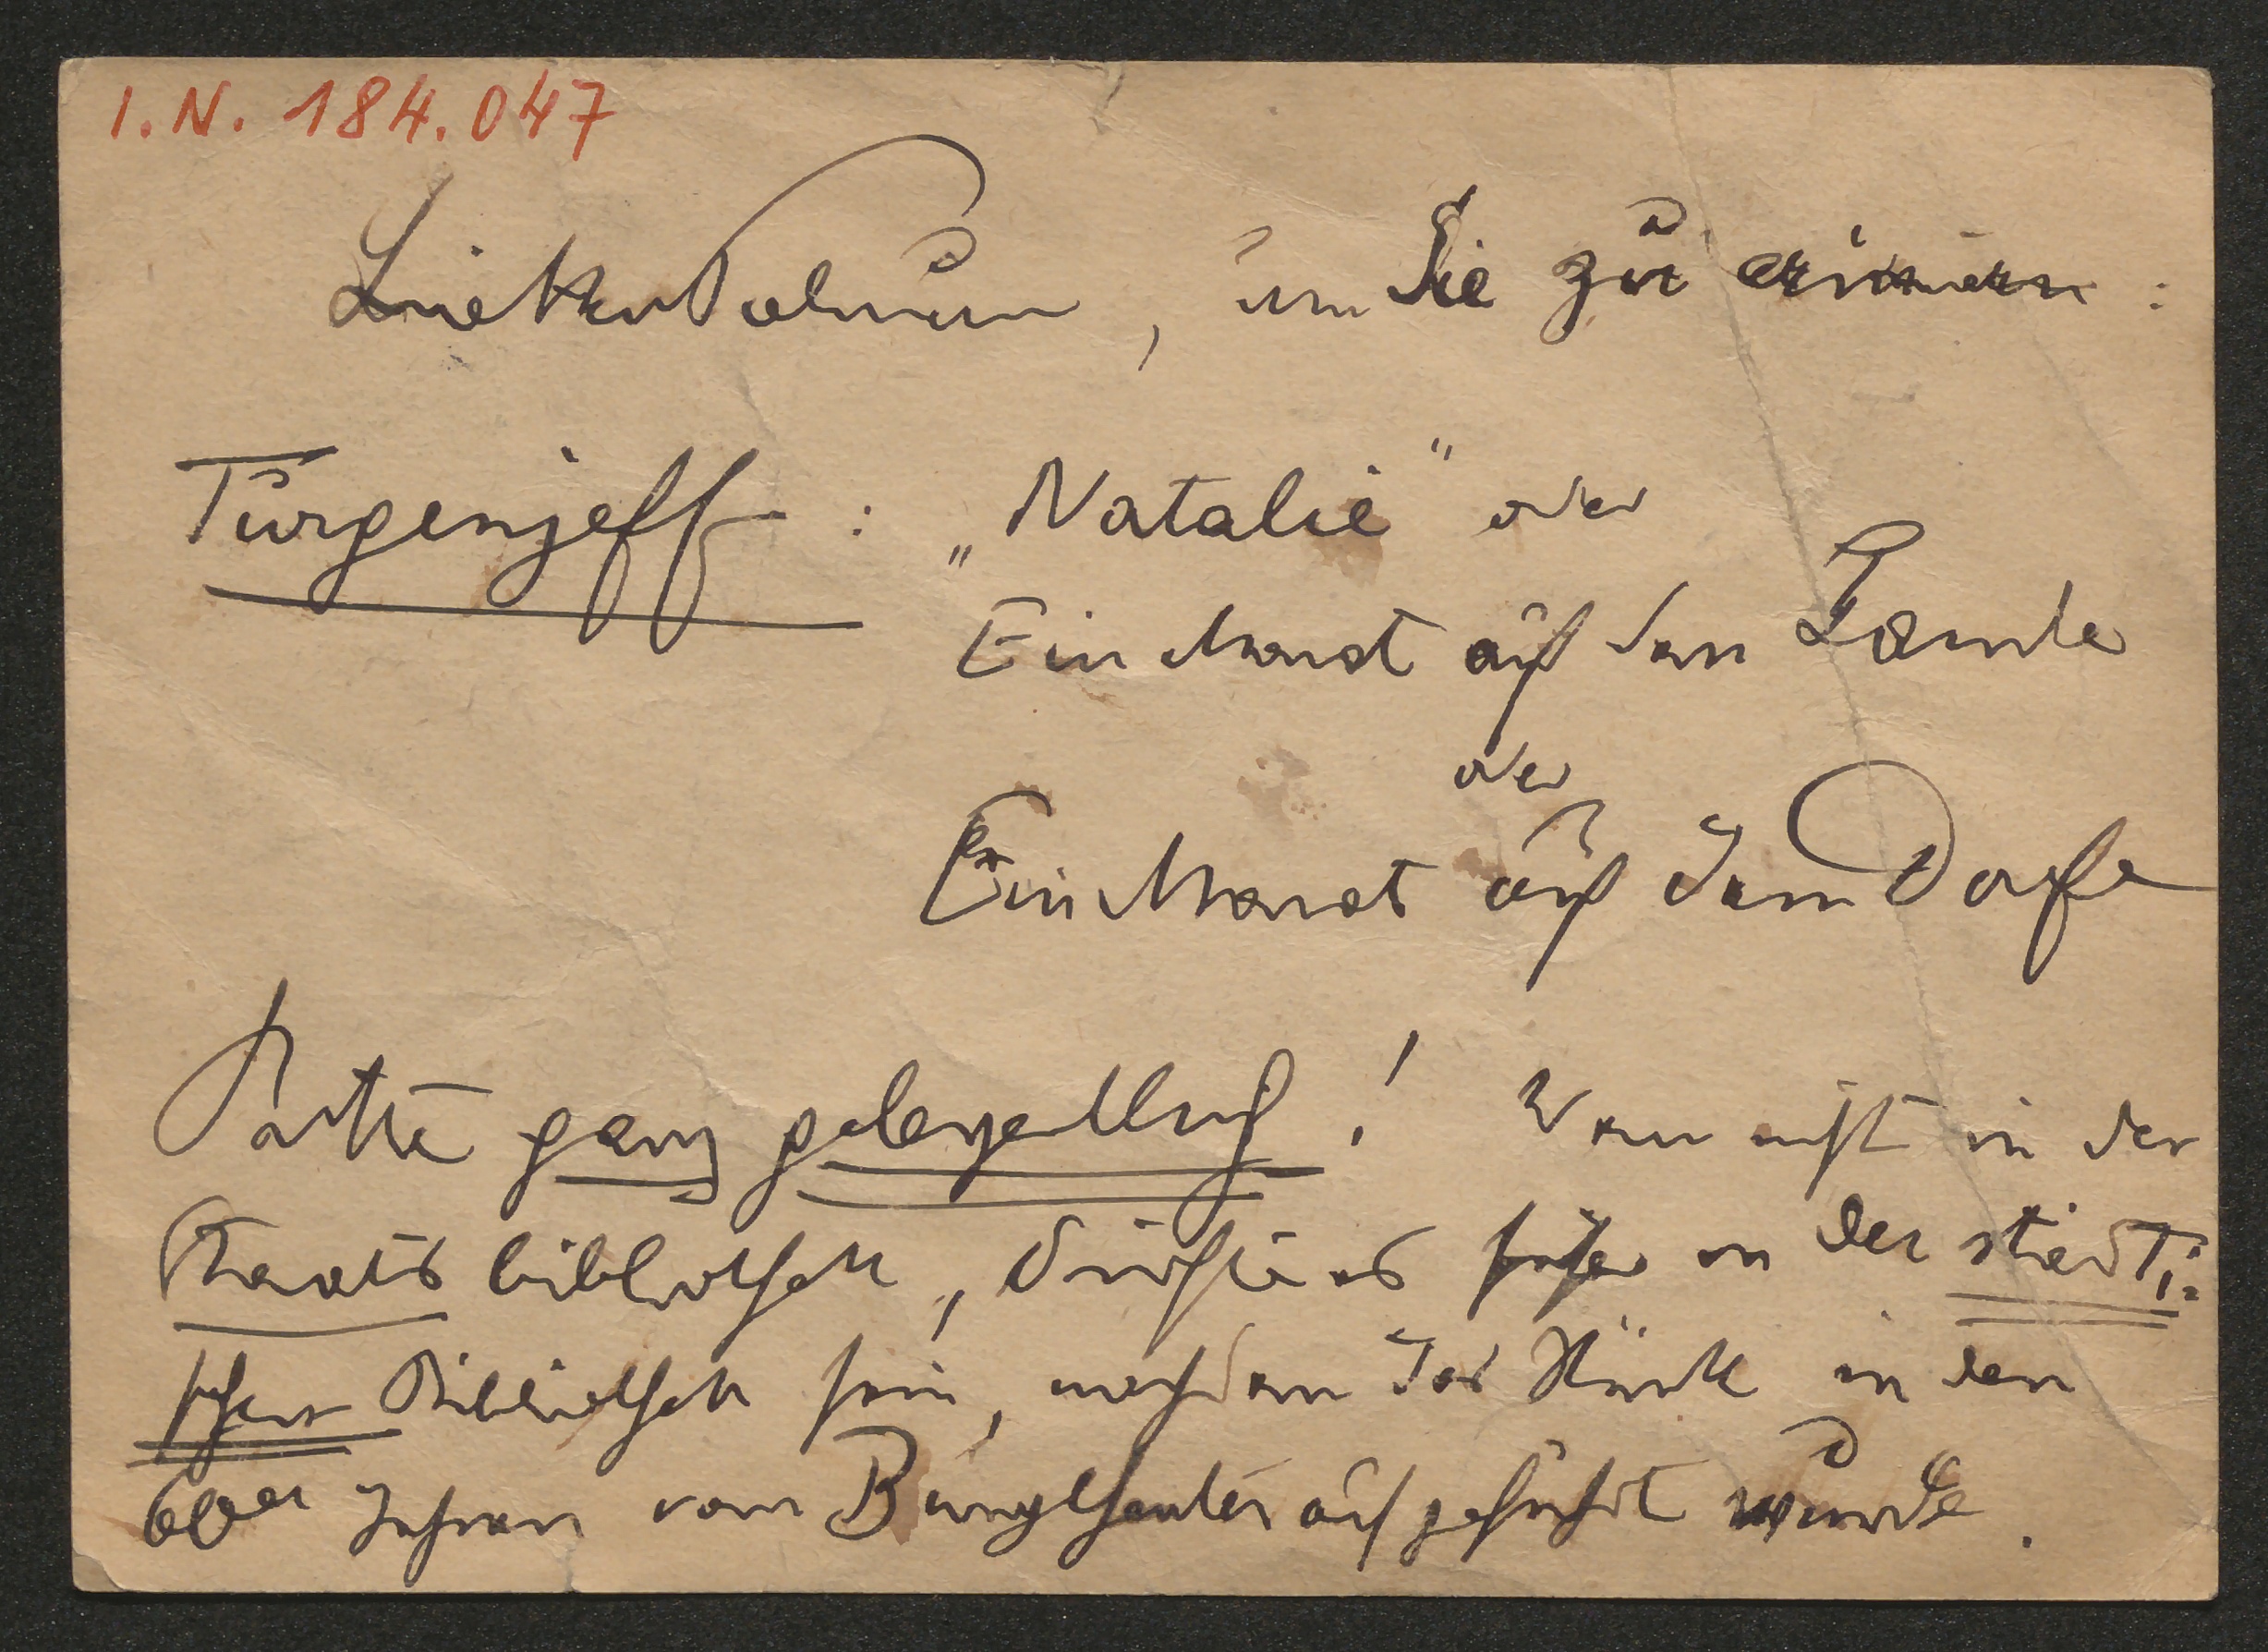 I.N. 184.047
Lieber, um Sie zu erinnern :
Turgenjeff : „Natalie“ oder
Ein Monat auf dem Lande
oder
Ein Monat auf dem Dorfe
Bitte ganz gelegentlich! Wenn nicht in der
Staatsbibliothek, dürfte es sicher in der städti-
schen Bibliothek sein, nachdem das Stück in den
60er Jahren vom Burgtheater aufgeführt wurde.